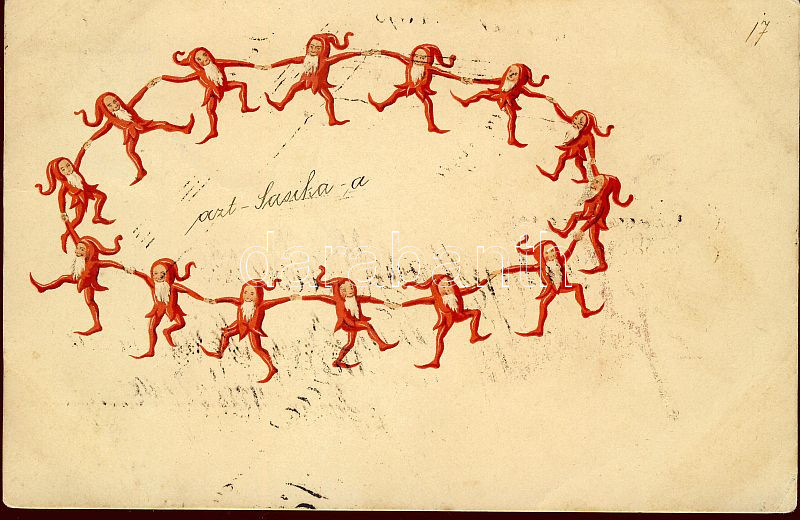 17
azt - Sasika - a
darabanth